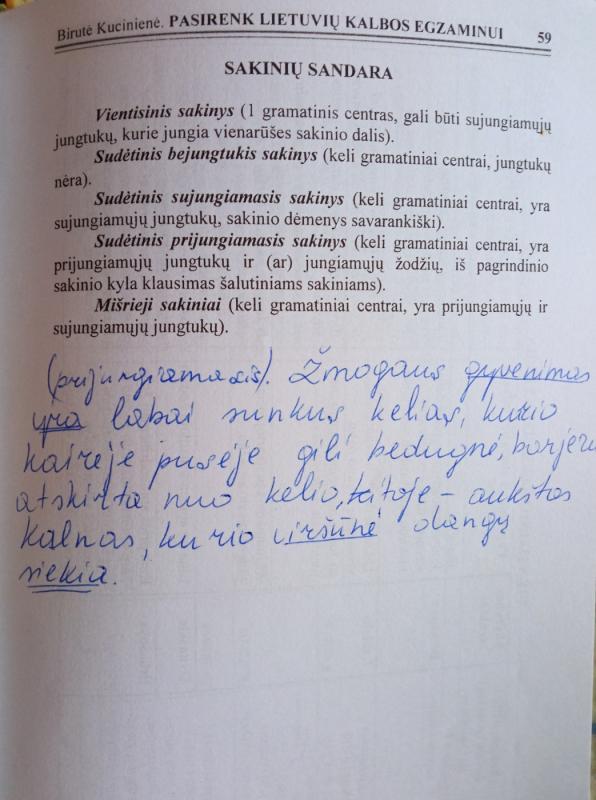 Birutė Kucinienė. PASIRENK LIETUVIŲ KALBOS EGZAMINUI 59
SAKINIŲ SANDARA
Vientisinis sakinys (1 gramatinis centras, gali būti sujungiamųjų
jungtukų, kurie jungia vienarūšes sakinio dalis).
Sudėtinis bejungtukis sakinys (keli gramatiniai centrai, jungtukų
nėra).
Sudėtinis sujungiamasis sakinys (keli gramatiniai centrai, yra
sujungiamųjų jungtukų, sakinio dėmenys savarankiški).
Sudėtinis prijungiamasis sakinys (keli gramatiniai centrai, yra
prijungiamųjų jungtukų ir (ar) jungiamųjų žodžių, iš pagrindinio
sakinio kyla klausimas šalutiniams sakiniams).
Mišrieji sakiniai (keli gramatiniai centrai, yra prijungiamųjų ir
sujungiamųjų jungtukų).
(prijungiamasis). Žmogaus gyvenimas
yra labai sunkus kelias, kurio
kairėje pusėje gili bedugnė, barjeru
atskirta nuo kelio, kitoje – aukštas
kalnas, kurio viršūnė dangų
siekia.